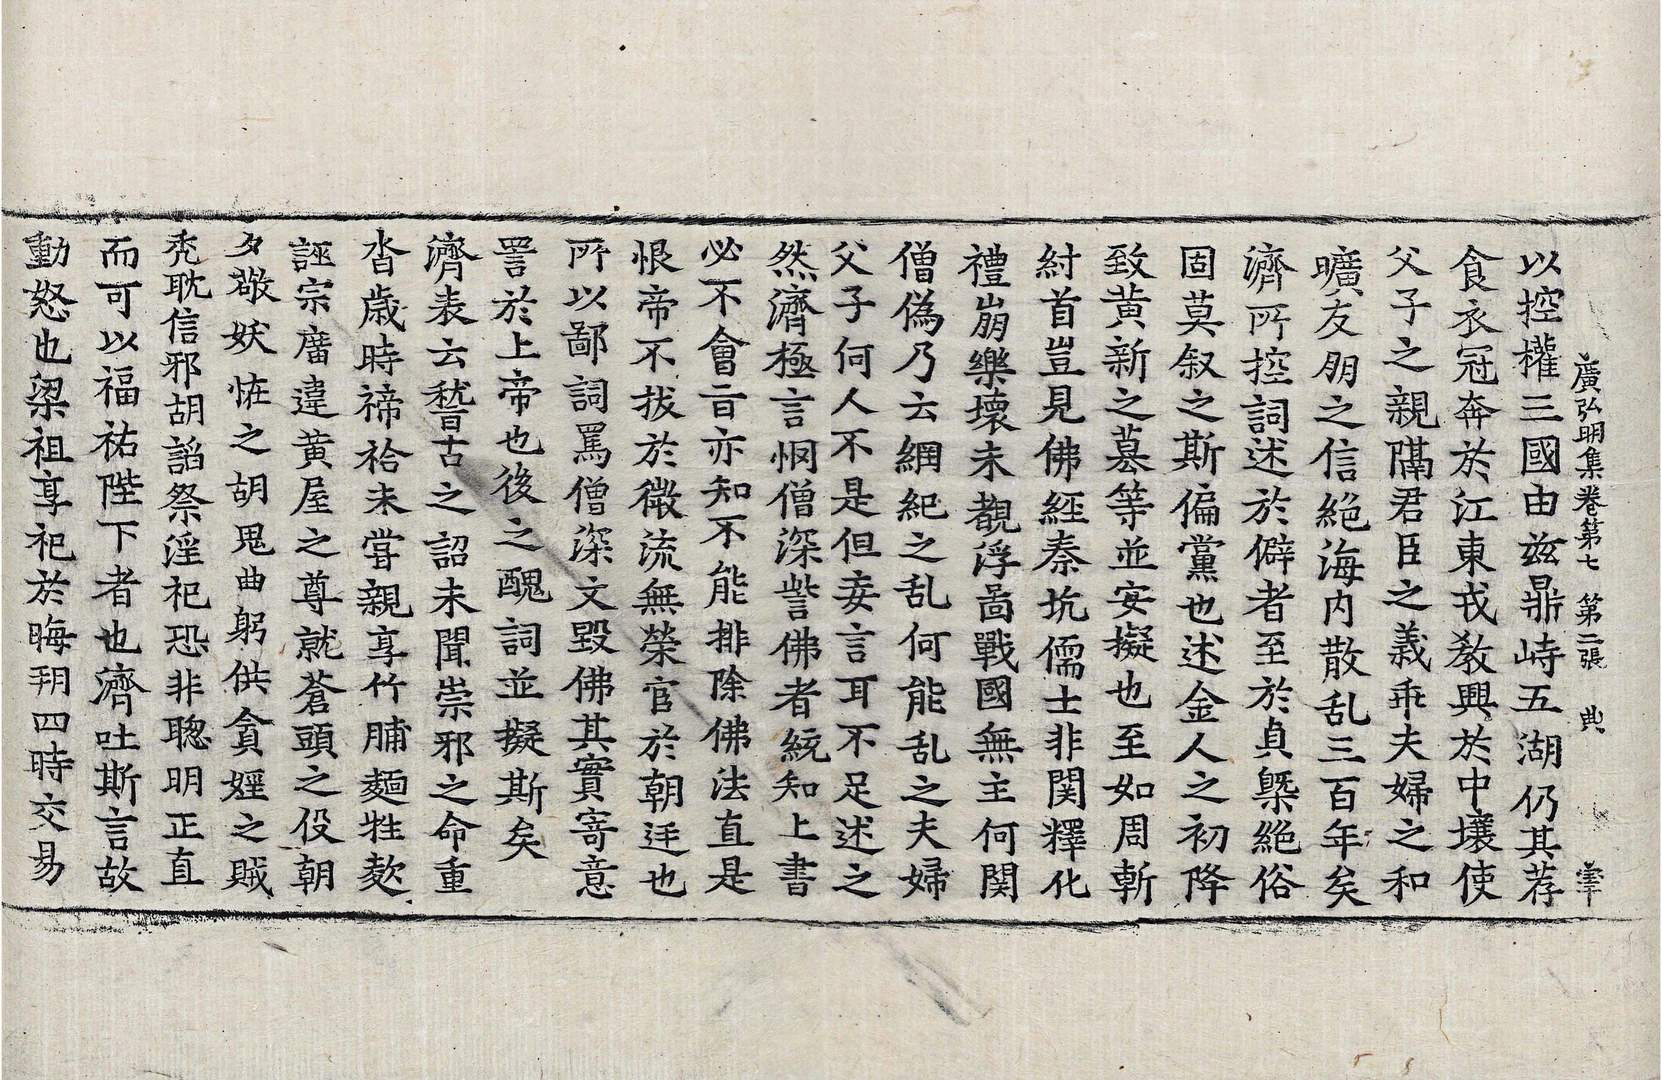 廣弘明集卷第七 第二張 典
以控權三國由玆鼎峙五湖仍其荐
食衣冠奔於江東戎敎興於中壤使
父子之親隔君臣之義乖夫婦之和
曠友朋之信絕海內散乱三百年矣
濟所控詞述於僻者至於貞槩絕俗
固莫叙之斯偏黨也述金人之初降
致黃新之墓等並安擬也至如周斬
紂首豈見佛經秦坑儒士非関釋化
禮崩樂壞未覩浮啚戰國無主何関
僧僞乃云綱紀之乱何能乱之夫婦
父子何人不是但妄言耳不足述之
然濟極言憫僧深訾佛者統知上書
必不會旨亦知不能排除佛法直是
恨帝不拔於微流無榮官於朝廷也
所以鄙詞罵僧深文毀佛其實寄意
詈於上帝也後之醜詞並擬斯矣
濟表云稽古之詔未聞崇邪之命重
沓歲時禘祫未甞親享竹脯麵牲欺
誣宗廟違黃屋之尊就蒼頭之役朝
夕敬妖恠之胡鬼曲躬供貪婬之賊
禿耽信邪胡諂祭淫祀恐非聦明正直
而可以福祐陛下者也濟吐斯言故
動怒也梁祖享祀於晦朔四時交易